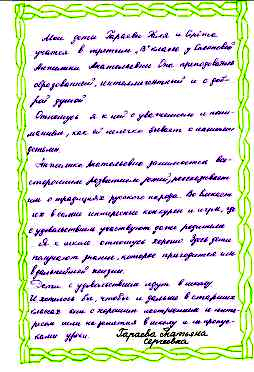 Мои дети Гараевы Коля и Серёжа
учатся в третьем „В" классе, у
Анжелики Анатольевны. Она преподаватель
образованный, интеллигентный и с доб-
рой душой
Отношусь я к ней с уважением и пони-
манием, как ей нелегко бывает с нашими
детьми.
Анжелика Анатольевна занимается все-
сторонним развитием детей, рассказывает
им о традициях русского народа. Вовлекает
их в самые интересные конкурсы и игры, где
с удовольствием участвуют даже родители.
Я к школе отношусь хорошо. Здесь дети
получают знание, которое пригодится им
в дальнейшей жизни.
Дети с удовольствием идут в школу.
И хотелось бы, чтобы и дальше в старших
классах они с хорошим настроением и инте-
ресом шли на занятия в школу и не пропус-
кали уроки.
Гараева Татьяна
Сергеевна